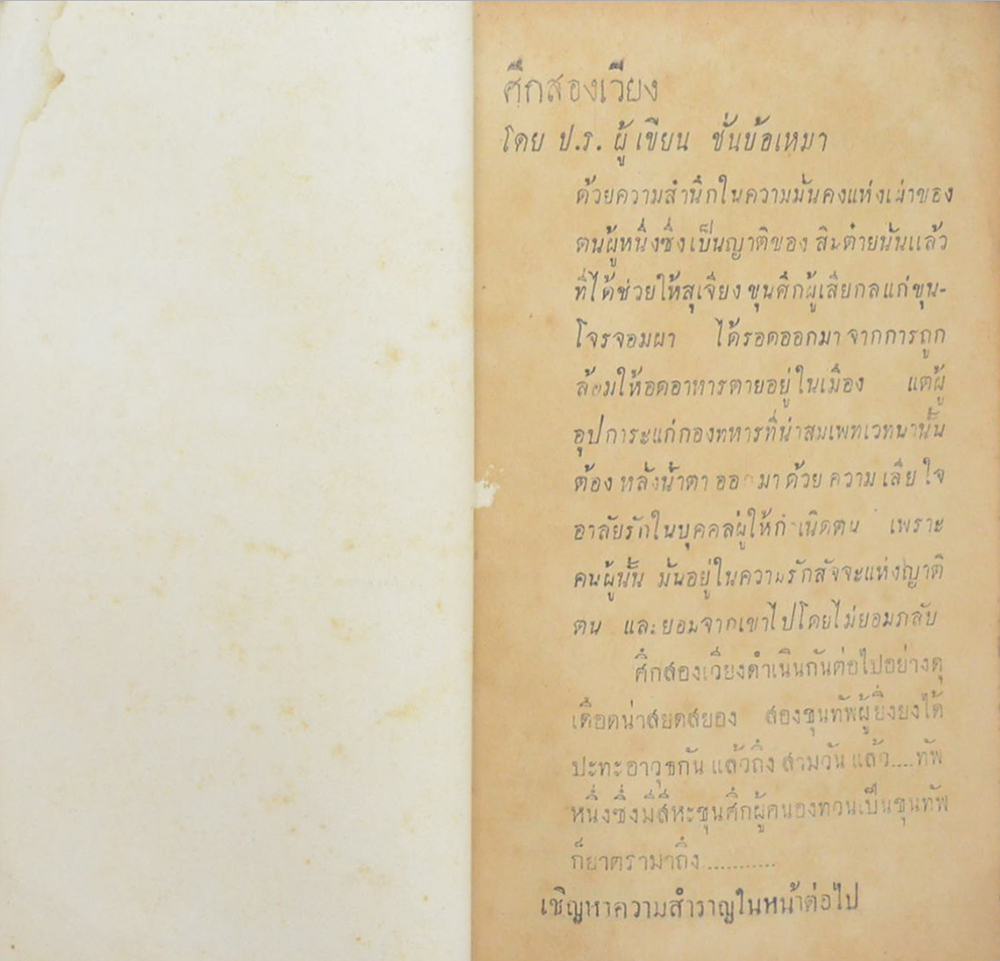 ศึกสองเวียง
โดย ป.ร. ผู้เขียน ชั่นบ้อเหมา
ด้วยความสำนึกในความมั่นคงแห่งเผ่าของ
ตนผู้หนึ่งซึ่งเป็นญาติของ สินต๋ายนั่นแล้ว
ที่ได้ช่วยให้สุเจียง ขุนศึกผู้เสียกลแก่ขุน-
โจรจอมผา ได้รอดออกมาจากการถูก
ล้อมให้อดอาหารตายอยู่ในเมือง แต่ผู้
อุปการะแก่กองทหารที่น่าสมเพทเวทนานั้น
ต้อง หลั่งน้ำตา ออกมาด้วย ความ เสีย ใจ
อาลัยรักในบุคคลผู้ให้กำเนิดตน เพราะ
คนผู้นั้น มั่นอยู่ในความรักสัจจะแห่งญาติ
ตน และยอมจากเขาไปโดยไม่ยอมกลับ
ศึกสองเวียงดำเนินกันต่อไปอย่างดุ
เดือดน่าสยดสยอง สองขุนทัพผู้ยิ่งยงได้
ปะทะอาวุธกัน แล้วถึง สามวัน แล้ว....ทัพ
หนึ่งซึ่งมีสีหะขุนศึกผู้คนองทวนเป็นขุนทัพ
ก็ยาตรามาถึง ...........
เชิญหาความสำราญในหน้าต่อไป